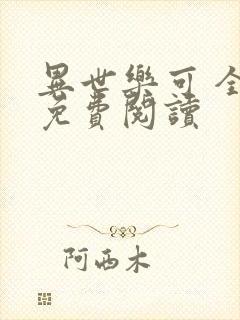 異世樂可 全
免費閱讀
阿西木